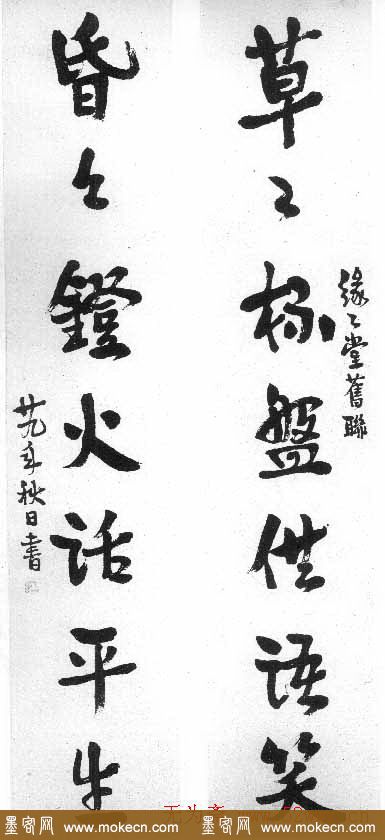 緣々堂舊聯
草々杯盤供語笑
昏々鐙火話平生
廿九年秋日書
墨客网 www.mokecn.com 墨客网 www.mokecn.com